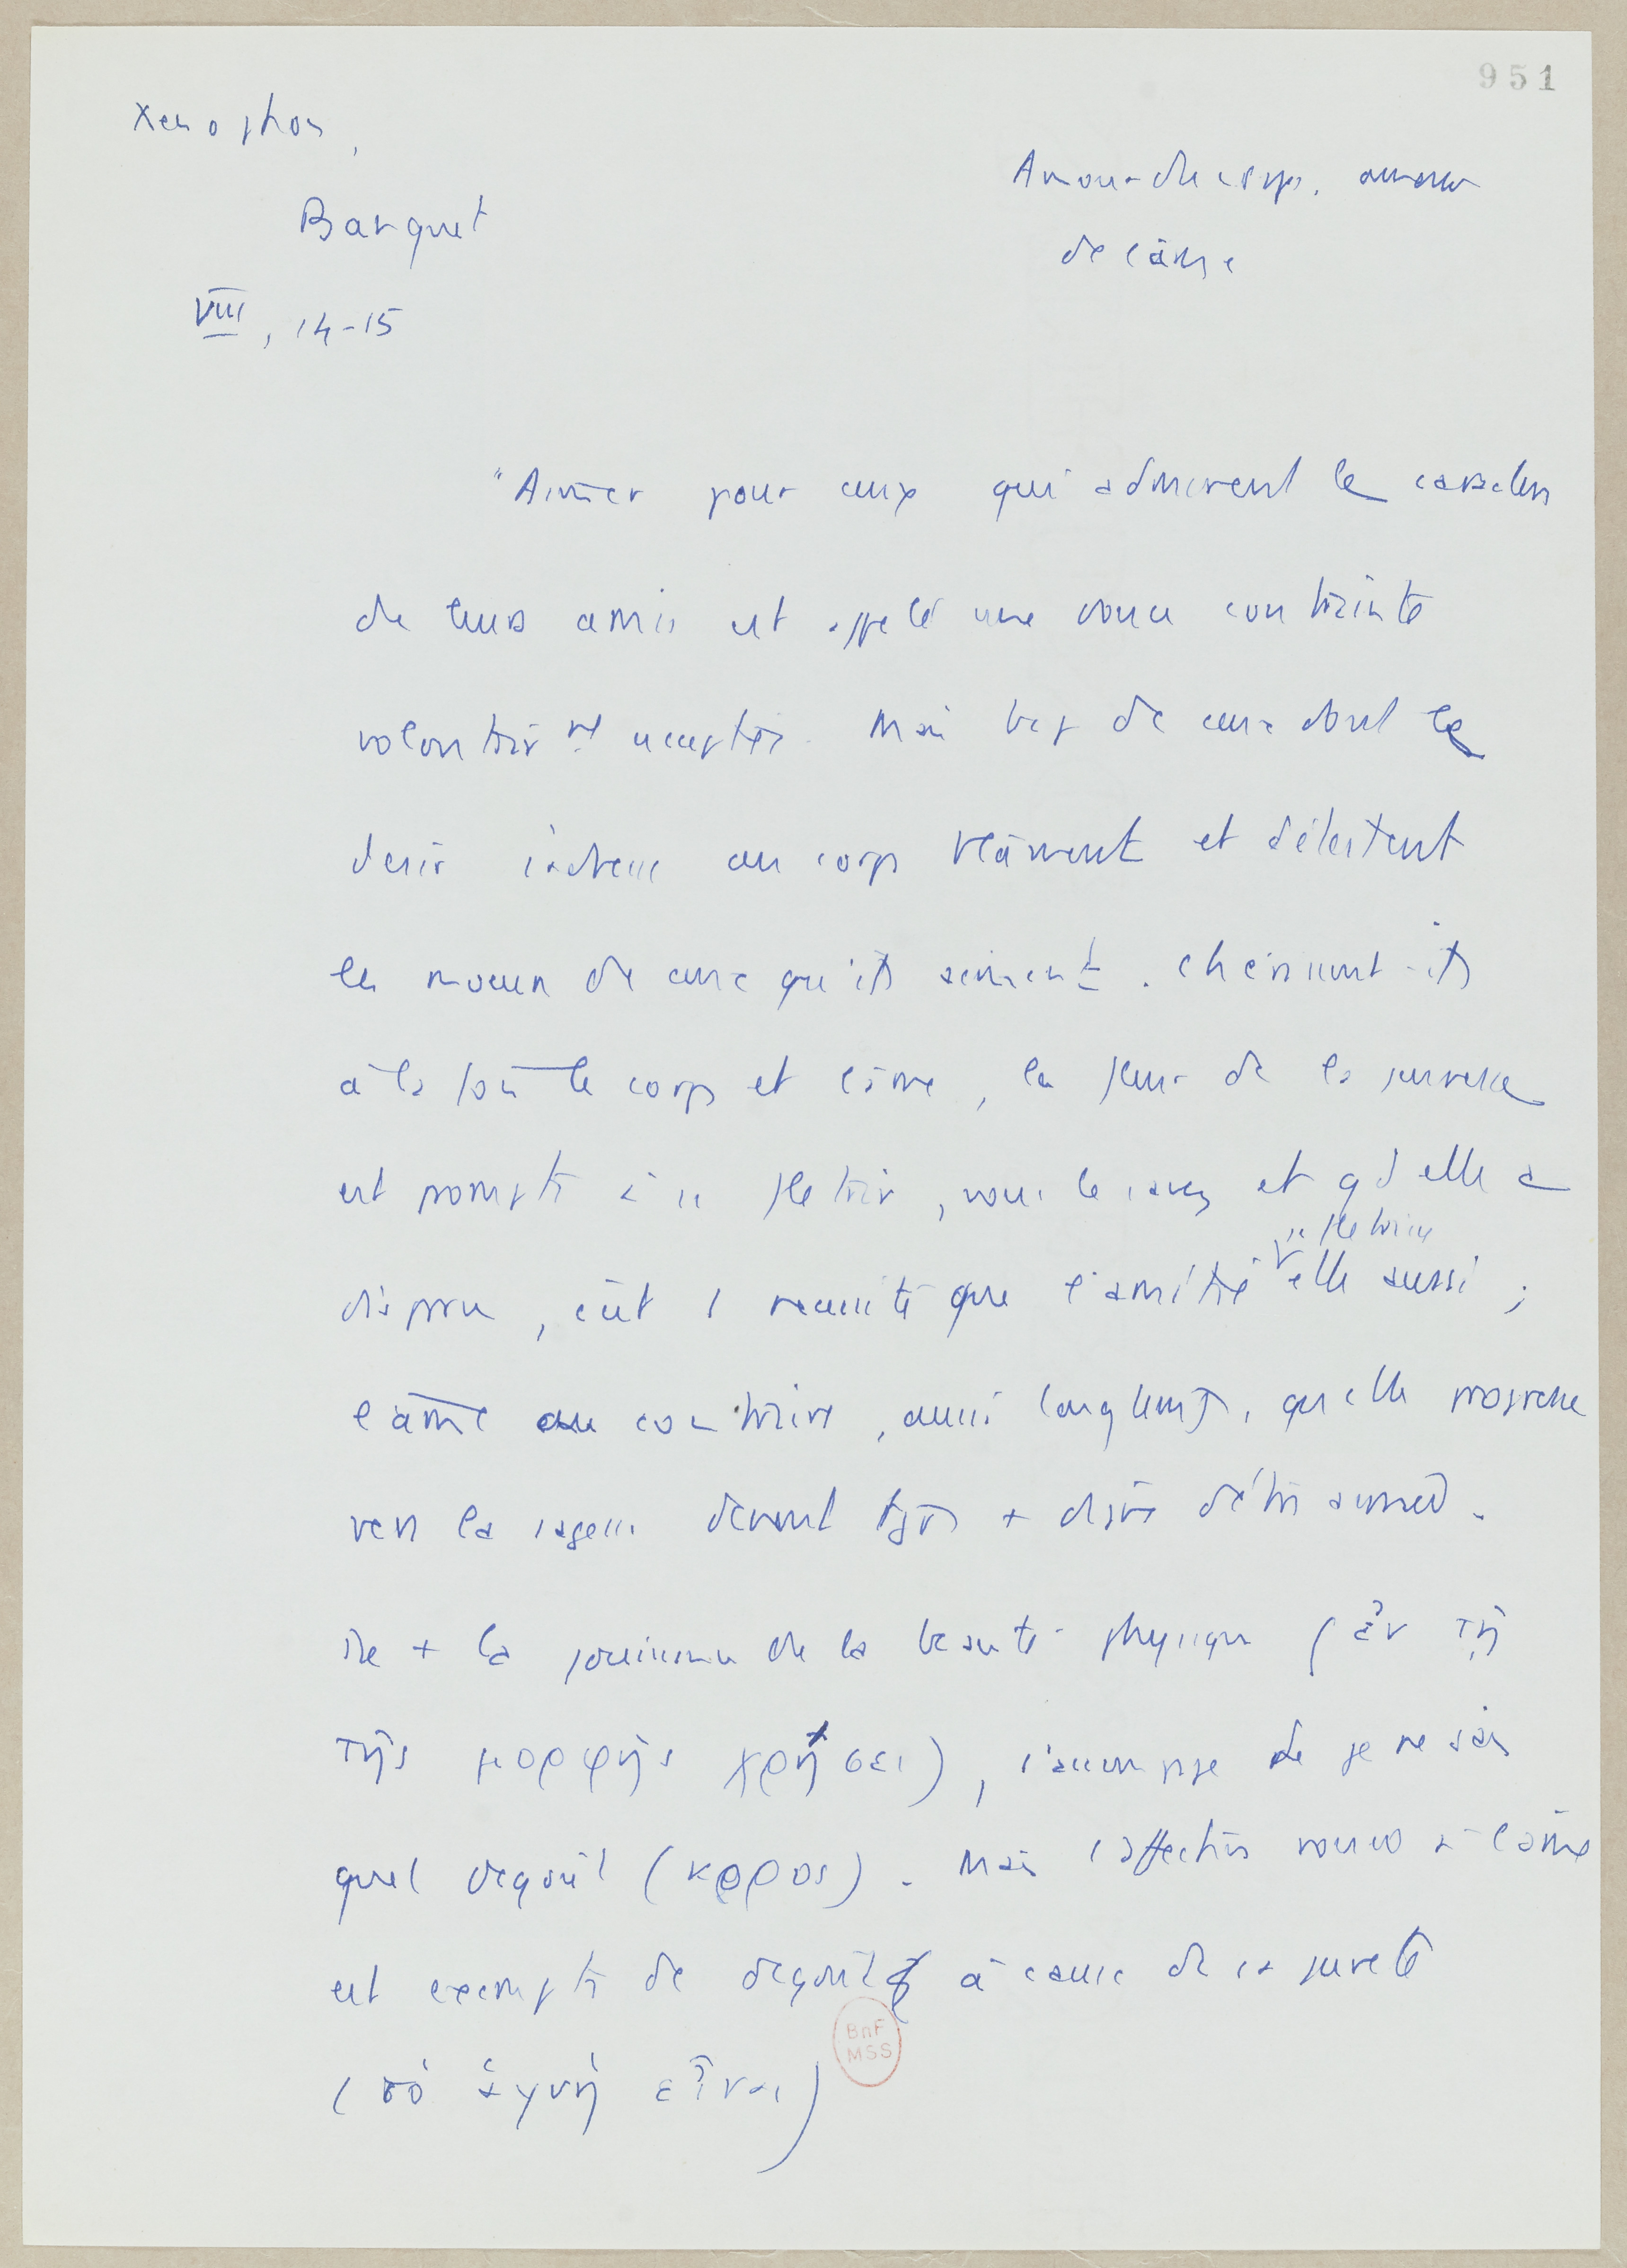 951
Xenophon,
Banquet
VIII, 14-15
Amour du corps. amour
de l'âme
"Aimer pour ceux qui admirent le caractère
de leurs amis est appelé une douce contrainte
volontairemt acceptée. Mais bcp de ceux dont le
désir s'adresse au corps blâment et détestent
les moeurs de ceux qu'ils aiment. Chérissent-ils
à la fois le corps et l'âme, la fleur de la jeunesse
est prompte à se flétrir, vous le savez et qd elle a
disparu, c'est 1 nécessité que l'amitié se flétrisse elle aussi ;
l'âme au contraire, aussi longtemps, qu'elle progresse
vers la sagesse devient tjrs + digne d'être aimée.
De + la jouissance de la beauté physique (ἐν τῇ
τῆς μορφῆς χρήσει), s'accompagne de je ne sais
quel dégoût (κόρος). Mais l'affection vouée à l'âme
est exempte de dégoût à cause de sa pureté
(τὸ ἁγνὴ εἶναι)
BnF
MSS